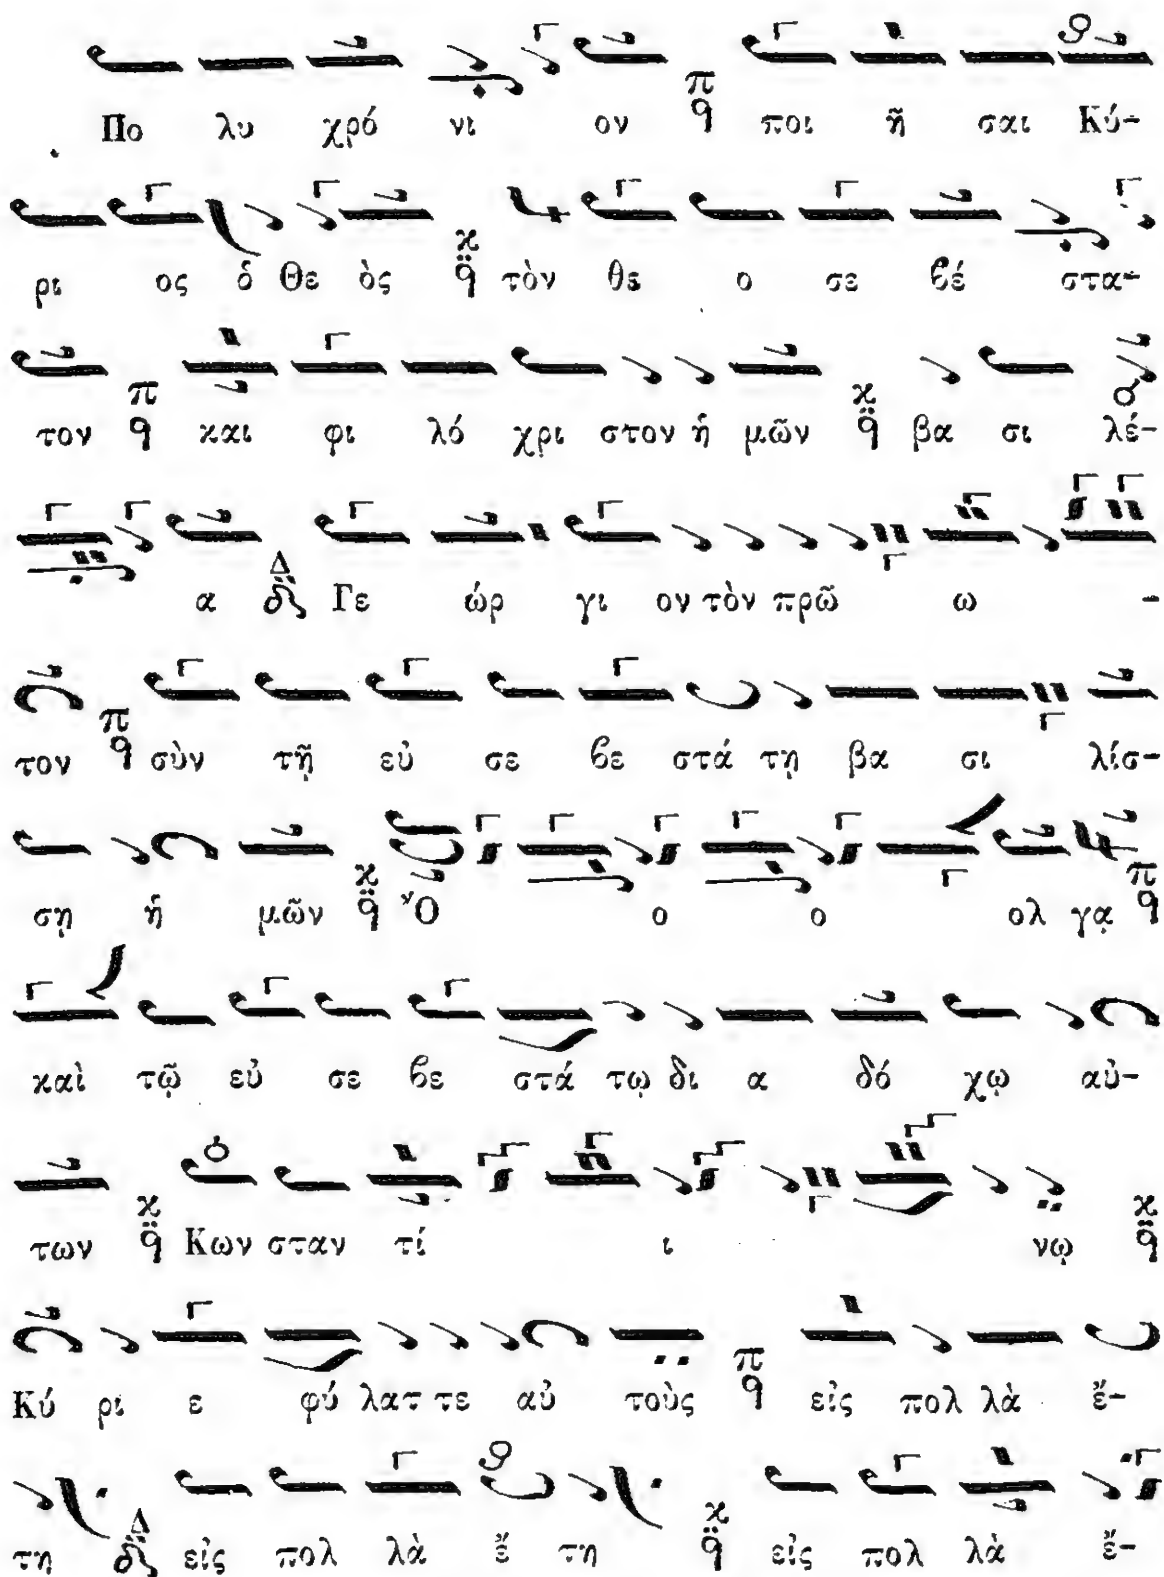 Πο λυ χρό νι ον π q ποι ῆ σαι Κύ-
ρι ος ὁ Θε ὸς κ q τὸν θε ο σε βέ στα-
τον π q και φι λό χρι στον ἡ μῶν κ q βα σι λέ-
α Δ Γε ώρ γι ον τὸν πρῶ ω -
τον π q σὺν τῇ εὐ σε βε στά τῃ βα σι λίσ-
σῃ ἡ μῶν κ q Ὄ ο ο ολ γᾳ π q
καὶ τῷ εὐ σε βε στά τῳ δι α δό χῳ αὐ-
των κ q Κων σταν τί ι νῳ κ q
Κύ ρι ε φύ λατ τε αὐ τοὺς π q εἰς πολ λὰ ἔ-
τη Δ εἰς πολ λὰ ἔ τη κ q εἰς πολ λὰ ἔ-